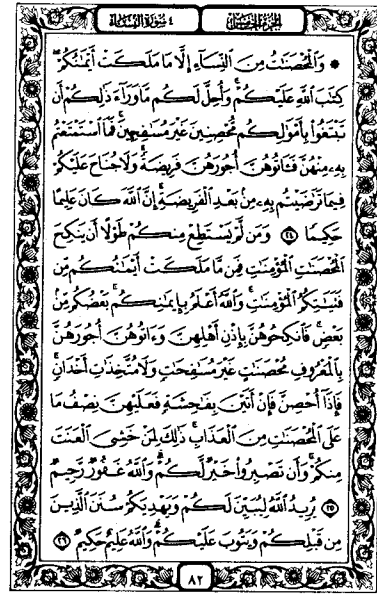 ٤ سُورَةُ النِّسَاءِ
الجُزءُ الخَامِسُ
۞ وَالْمُحْصَنَاتُ مِنَ النِّسَاءِ إِلَّا مَا مَلَكَتْ أَيْمَانُكُمْ
كِتَابَ اللَّهِ عَلَيْكُمْ وَأُحِلَّ لَكُم مَّا وَرَاءَ ذَٰلِكُمْ أَن
تَبْتَغُوا بِأَمْوَالِكُم مُّحْصِنِينَ غَيْرَ مُسَافِحِينَ فَمَا اسْتَمْتَعْتُم
بِهِ مِنْهُنَّ فَـَٔاتُوهُنَّ أُجُورَهُنَّ فَرِيضَةً وَلَا جُنَاحَ عَلَيْكُمْ
فِيمَا تَرَاضَيْتُم بِهِ مِن بَعْدِ الْفَرِيضَةِ إِنَّ اللَّهَ كَانَ عَلِيمًا
حَكِيمًا ٢٤ وَمَن لَّمْ يَسْتَطِعْ مِنكُمْ طَوْلًا أَن يَنكِحَ
الْمُحْصَنَاتِ الْمُؤْمِنَاتِ فَمِن مَّا مَلَكَتْ أَيْمَانُكُم مِّن
فَتَيَاتِكُمُ الْمُؤْمِنَاتِ وَاللَّهُ أَعْلَمُ بِإِيمَانِكُم بَعْضُكُم مِّن
بَعْضٍ فَانكِحُوهُنَّ بِإِذْنِ أَهْلِهِنَّ وَءَاتُوهُنَّ أُجُورَهُنَّ
بِالْمَعْرُوفِ مُحْصَنَاتٍ غَيْرَ مُسَافِحَاتٍ وَلَا مُتَّخِذَاتِ أَخْدَانٍ
فَإِذَا أُحْصِنَّ فَإِنْ أَتَيْنَ بِفَاحِشَةٍ فَعَلَيْهِنَّ نِصْفُ مَا
عَلَى الْمُحْصَنَاتِ مِنَ الْعَذَابِ ذَٰلِكَ لِمَنْ خَشِيَ الْعَنَتَ
مِنكُمْ وَأَن تَصْبِرُوا خَيْرٌ لَّكُمْ وَاللَّهُ غَفُورٌ رَّحِيمٌ
٢٥ يُرِيدُ اللَّهُ لِيُبَيِّنَ لَكُمْ وَيَهْدِيَكُمْ سُنَنَ الَّذِينَ
مِن قَبْلِكُمْ وَيَتُوبَ عَلَيْكُمْ وَاللَّهُ عَلِيمٌ حَكِيمٌ ٢٦
٨٢